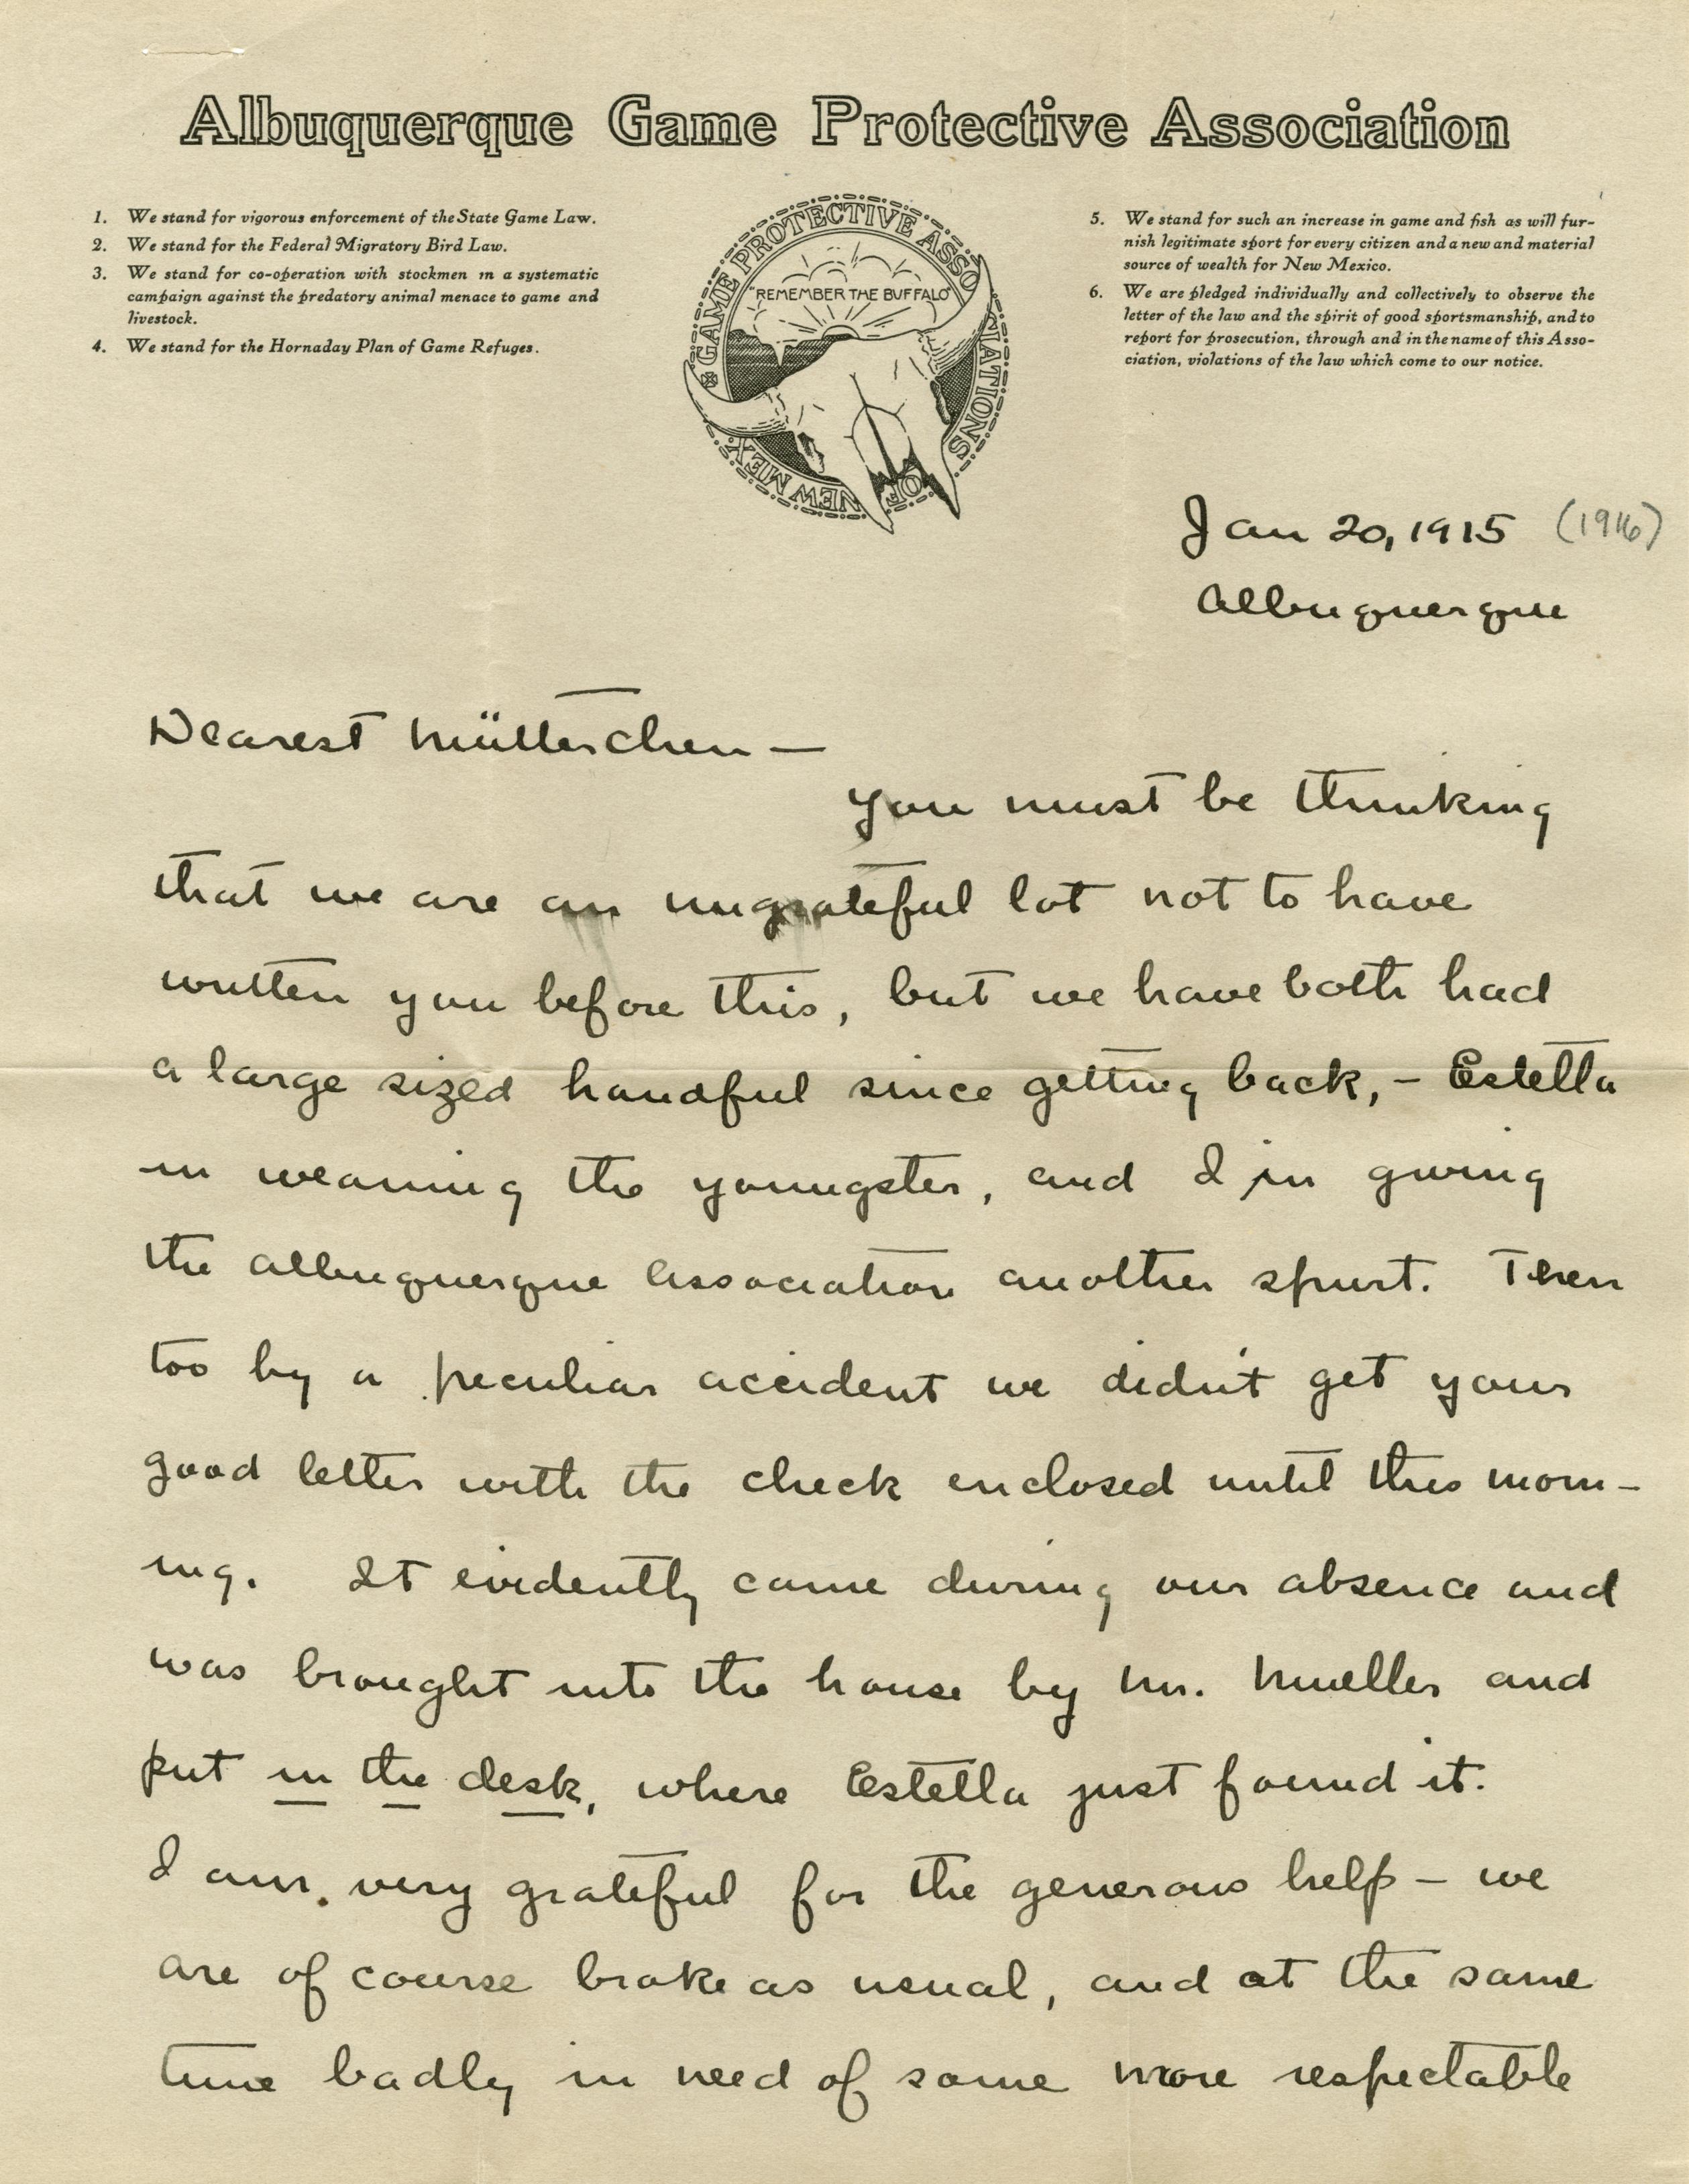 Albuquerque Game Protective Association
1. We stand for vigorous enforcement of the State Game Law.
2. We stand for the Federal Migratory Bird Law.
3. We stand for co-operation with stockmen in a systematic
campaign against the predatory animal menace to game and
livestock.
4. We stand for the Hornaday Plan of Game Refuges.
GAME PROTECTIVE ASSOCIATIONS OF NEW MEX.
"REMEMBER THE BUFFALO"
5. We stand for such an increase in game and fish as will fur-
nish legitimate sport for every citizen and a new and material
source of wealth for New Mexico.
6. We are pledged individually and collectively to observe the
letter of the law and the spirit of good sportsmanship, and to
report for prosecution, through and in the name of this Asso-
ciation, violations of the law which come to our notice.
Jan 20, 1915 (1916)
Albuquerque
Dearest Mütterchen —
You must be thinking
that we are an ungrateful lot not to have
written you before this, but we have both had
a large sized handful since getting back, – Estella
in weaning the youngster, and I in giving
the Albuquerque Association another spurt. Then
too by a peculiar accident we didn't get your
good letter with the check enclosed until this morn-
ing. It evidently came during our absence and
was brought into the house by Mr. Mueller and
put in the desk, where Estella just found it.
I am very grateful for the generous help – we
are of course broke as usual, and at the same
time badly in need of some more respectable